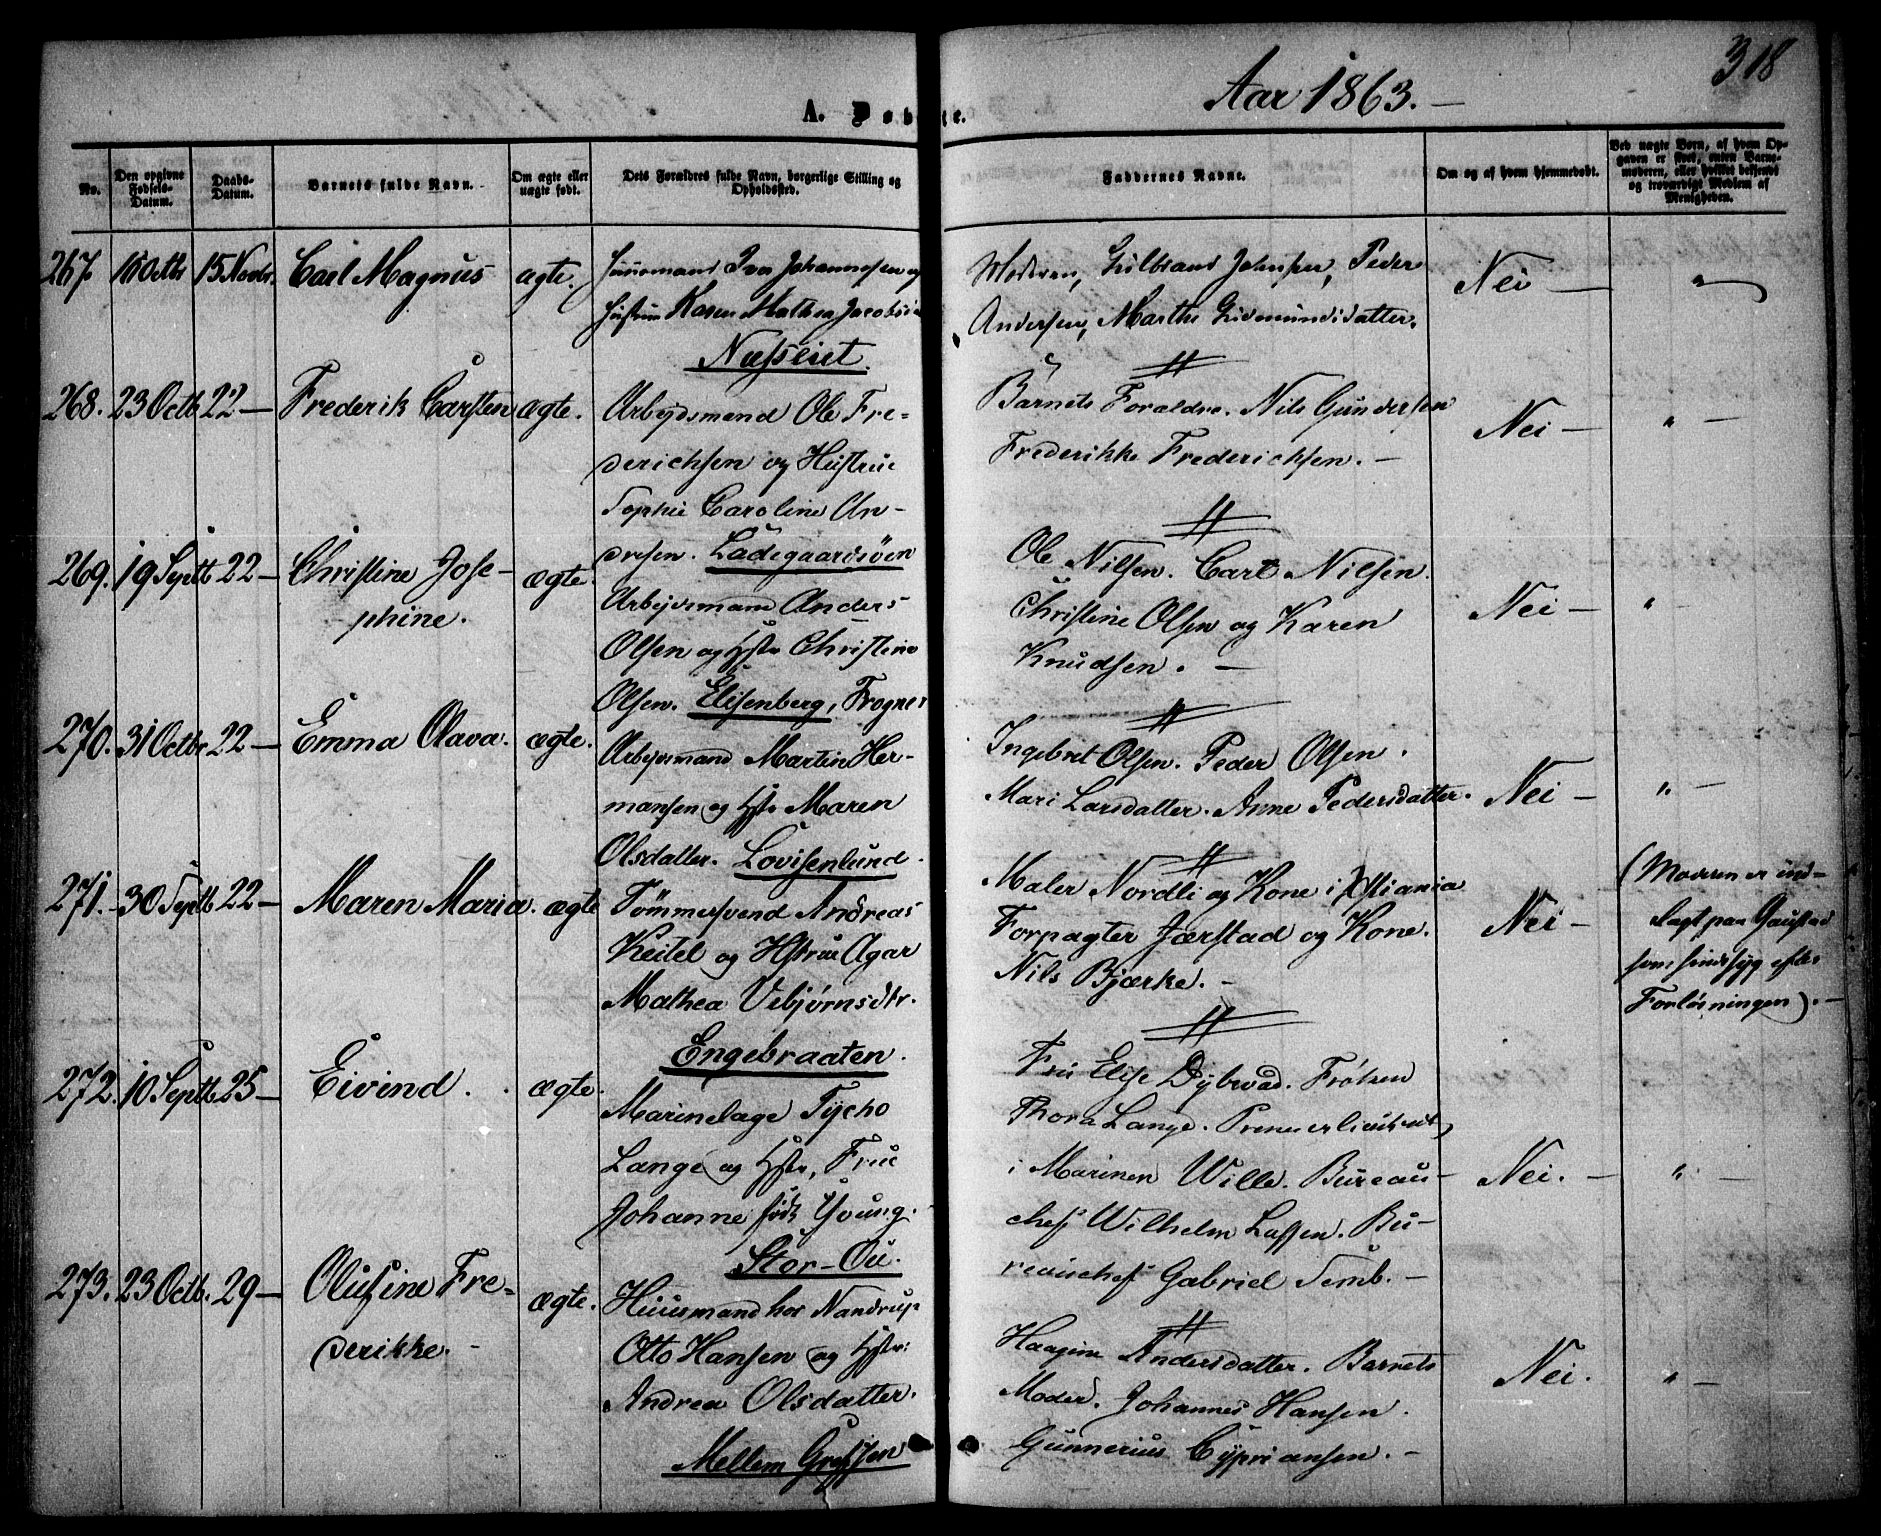 318
Aar 1863. —
A. Døbte.
No.
Den opgivne Fødsels-Datum.
Daabs-Datum.
Barnets fulde Navn.
Om ægte eller uægte født.
Dets Forældres fulde Navn, borgerlige Stilling og Opholdssted.
Faddernes Navne.
Om og af hvem hjemmedøbt.
Ved uægte Born, af hvem Opgaven er skeet, enten Barnemoderen, eller hvilket bekjendt og troværdigt Medlem af Menigheden.
267. Octbr 15 Novbr. Carl Magnus ægte.
Huusmand Iver Johannesen og
Hustru Karen Mathea Jacobs
Næsseiet.
Moderen, Gulbrand Johnsen, Peder
Andersen, Marthe Gudmundsdatter.
Nei — "
268. 23 Octb. 22 — Frederik Carsten ægte.
Arbejdsmand Ole Fre-
derichsen og Hustrue
Sophie Caroline An-
dresen. Ladegaardsøen
Barnets Forældre. Nils Gundersen
Frederikke Frederichsen. —
Nei — " —
269. 19 Septb 22 — Christine Jose-
phine.
ægte.
Arbejdsmand Anders
Olsen og Hstr Christine
Olsen. Elisenberg, Frogner
Ole Nilsen. Carl Nilsen.
Christine Olsen og Karen
Knudsen. —
Nei — " —
270. 31 Octbr 22 — Emma Olava. ægte.
Arbejdsmand Martin Her-
mansen og Hstr Maren
Olsdatter. Lovisenlund.
Ingebret Olsen. Peder Olsen.
Mari Larsdatter. Anne Pedersdatter.
Nei — " —
271. 30 Septb 22 — Maren Maria. ægte
Tømmersvend Andreas
Keitel og Hstrue Agar
Mathea Vebjørnsdtr.
Engebraaten.
Maler Nordli og Kone i Xstiania
Forpagter Jærstad og Kone.
Nils Bjærke. —
Nei —
(Moderen er ind-
lagt paa Gaustad
som sindssyg efter
Forløsningen). —
272. 10 Septb 25 — Eivind. ægte.
Marinelæge Tycho
Lange og Hstr, Frue
Johanne født Young.
Stor-Ou.
Fru Elise Dybwad. Frøken
Thora Lange. Premierlieutenant
i Marinen Wille. Bureau-
chef Wilhelm Lassen. Bu-
reauchef Gabriel Semb. —
Nei. — " —
273. 23 Octb. 29 — Olufine Fre-
derikke. —
ægte.
Huusmand hos Nandrup
Otto Hansen og Hstr:
Andrea Olsdatter.
Mellem Grefsen
Andersdatter. Barnets
Moder. Johannes Hansen.
Gunnerius Cypriansen. —
Nei. " —